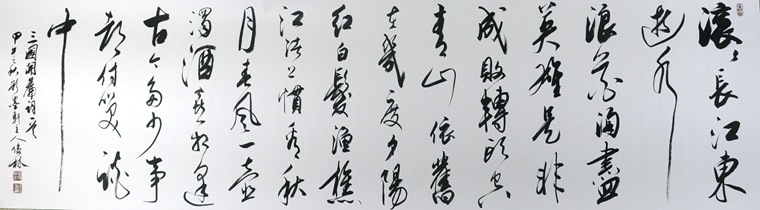 滚々長江東
逝水
浪花淘盡
英雄是非
成敗轉頭空
青山依舊
在幾度夕陽
紅白髮漁樵
江渚上慣看秋
月春風一壺
濁酒喜相逢
古今多少事
都付笑談
中
三國開篇詞一首
甲午之秋主人